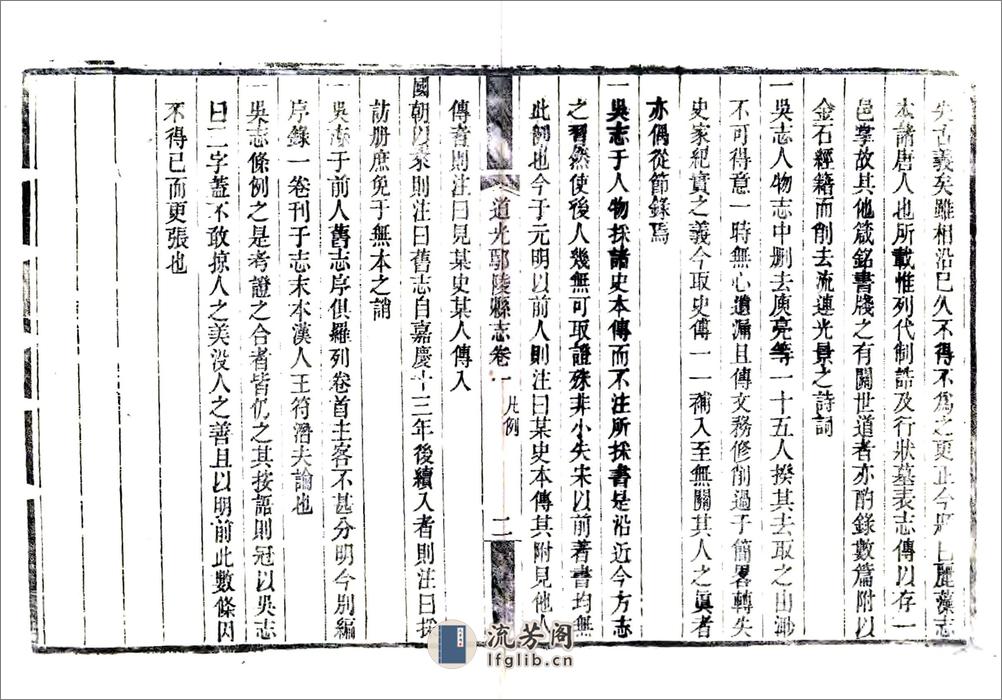 失古義矣雖相沿已久不得不為之更正今題曰麗藻志
本諸唐人也所載惟列代制誥及行狀墓表志傳以存一
邑掌故其他箴銘書牋之有關世道者亦酌錄數篇附以
金石經籍而削去流連光景之詩詞
一吳志人物志中刪去庾亮等一十五人揆其去取之由渺
不可得意一時無心遺漏且傳文務修削過于簡畧轉失
史家紀實之義今取史傳一一補入至無關其人之真者
亦偶從節錄焉
一吳志于人物採諸史本傳而不注所採書是沿近今方志
之習然使後人幾無可取證殊非小失宋以前著書均無
此例也今于元明以前人則注曰某史本傳其附見他人
道光鄢陵縣志卷一 凡例 二
傳者則注曰見某史某人傳入
國朝以來則注曰舊志自嘉慶十三年後續入者則注曰採
訪册庶免于無本之誚
一吳志于前人舊志序俱羅列卷首主客不甚分明今別編
序錄一卷刊于志末本漢人王符潛夫論也
一吳志條例之是考證之合者皆仍之其按語則冠以吳志
曰二字蓋不敢掠人之美沒人之善且以明前此數條因
不得已而更張也
流芳阁
lfglib.cn